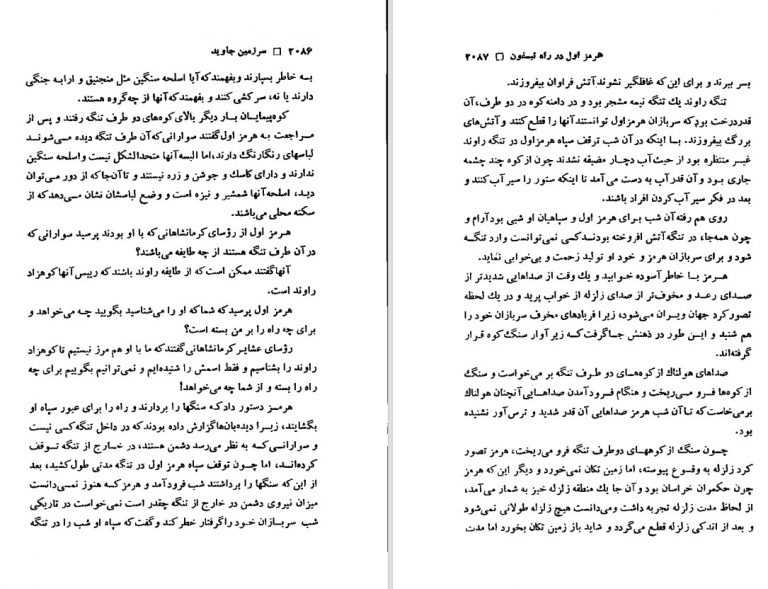 ۲۰۸۶ □ سرزمین جاوید
بـه خاطر بسپارند وبفهمندکه‌آیا اسلحه سنگین مثل منجنیق و ارابه جنگی
دارند یا نه، سرکشی کنند و بفهمندکه‌آنها ازچه‌گروه هستند.
کوه‌پیمایـان بـار دیگر بالای‌کوه‌های دو طرف تنگه رفتند و پس از
مـراجعت بـه هرمز اول‌گفتند سوارانی‌که آن طرف تنگه دیده مـی‌شوند
لباسهای رنگارنگ دارند، اما البسه آنها متحدالشکل نیست واسلحه سنگین
ندارند و دارای کاسك و جوشن و زره نیستند و تاآن‌جاکه از دور می‌توان
دید، اسلحه‌آنها شمشیر و نیزه است و وضع لباسشان نشان می‌دهدکه از
سکنه محلی می‌باشند.
هـرمز اول از رؤسای کرمانشاهانی‌که با او بودند پرسید سوارانی‌که
درآن طرف تنگه هستند از چه طایفه می‌باشند؟
آنهاگفتند ممکن است‌که از طایفه راوند باشندکه رییس‌آنهاکوهزاد
راوند است.
هرمز اول پرسیدکه شماکه او را می‌شناسید بگویید چـه می‌خواهد و
برای چه راه را بر من بسته است؟
رؤسای عشایر کرمانشاهانی‌گفتندکه ما با او هم مرز نیستیم تاکوهزاد
راوند را بشناسیم و فقط اسمش را شنیده‌ایم و نمی‌توانیم بگوییم برای چه
راه را بسته و از شما چه می‌خواهد!
هرمـز دستور دادکـه سنگها را بردارند و راه را برای عبور سپاه او
بگشایند، زیـرا دیده‌بان‌هاگزارش داده بودندکه در داخل تنگه‌کسی نیست
و سوارانـی‌کـه به نظر می‌رسد دشمن هستند، در خارج از تنگه توقف
کرده‌انـد، امـا چـون توقف سپاه هرمز اول در تنگه مدتی طول‌کشید، بعد
از این‌که سنگها را برداشتند شب فرودآمد و هرمزکـه هنوز نمـی‌دانست
میزان نیروی دشمن در خارج از تنگه چقدر است نمی‌خواست در تاریکی
شب سربازان خـود راگرفتار خطرکند وگفت‌که سپاه او شب را در تنگه
هرمز اول در راه تیسفون □ ۲۰۸۷
بسر ببرند و برای این‌که غافلگیر نشوندآتش فراوان بیفروزند.
تنگه راوند یك تنگه نیمه مشجر بود و در دامنه‌کوه در دو طرف،آن
قدردرخت بودکه سربازان هرمزاول توانستندآنها را قطع‌کنند وآتش‌های
بزرگ بیفروزند. بـا اینکه درآن شب ترقف سپاه هرمزاول در تنگه راوند
غیـر منتظره بود از حیث‌آب دچـار مضیقه نشدند چون ازکوه چند چشمه
جاری بـود وآن قدرآب به دست می‌آمد تا اینکه ستور را سیرآب‌کنند و
بعد در فکر سیرآب‌کردن افراد باشند.
روی هم رفته‌آن شب بـرای هرمز اول و سپاهیان او شبی بودآرام و
چون همه‌جاء در تنگه‌آتش افروخته بودنـدکسی نمی‌توانست وارد تنگـه
شود و برای سربازان هرمز و خود او تولید زحمت و بی‌خوابی نماید.
هـرمز بـا خاطرآسوده خـوابید و یك وقت از صداهایی شدیدتر از
صـدای رعـد و مخوف‌تر از صدای زلزله از خواب پرید و در یك لحظه
تصورکرد جهان ویـران می‌شود، زیرا فریادهای مخوف سربازان خود را
هم شنید و این طور در ذهنش جـاگرفت‌کـه زیرآوار سنگ‌کوه قـرار
گرفته‌اند.
صداهای هولناك ازکوه‌های دو طرف تنگه بر می‌خواست و سنگ
ازکوه‌ها فـرو مـی‌ریخت و هنگام فرودآمدن صداهایـی‌آنچنان هولناك
برمی‌خاست‌که تـاآن شب هرمز صداهایی آن قدر شدید و ترس‌آور نشنیده
بود.
چـون سنگ ازکوههای دوطرف تنگه فرو می‌ریخت، هرمز تصور
کرد زلزله به وقـوع پیوسته، اما زمین تکان نمی‌خورد و دیگر این‌که هرمز
چون حکمران خراسان بود وآن جا یك منطقه زلزله خیز به شمار می‌آمد،
از لحاظ مدت زلزله تجربه داشت ومی‌دانست هیچ زلزله طولانی نمی‌شود
و بعد از اندکی زلزله قطع می‌گردد و شاید باز زمین تکان بخورد اما مدت